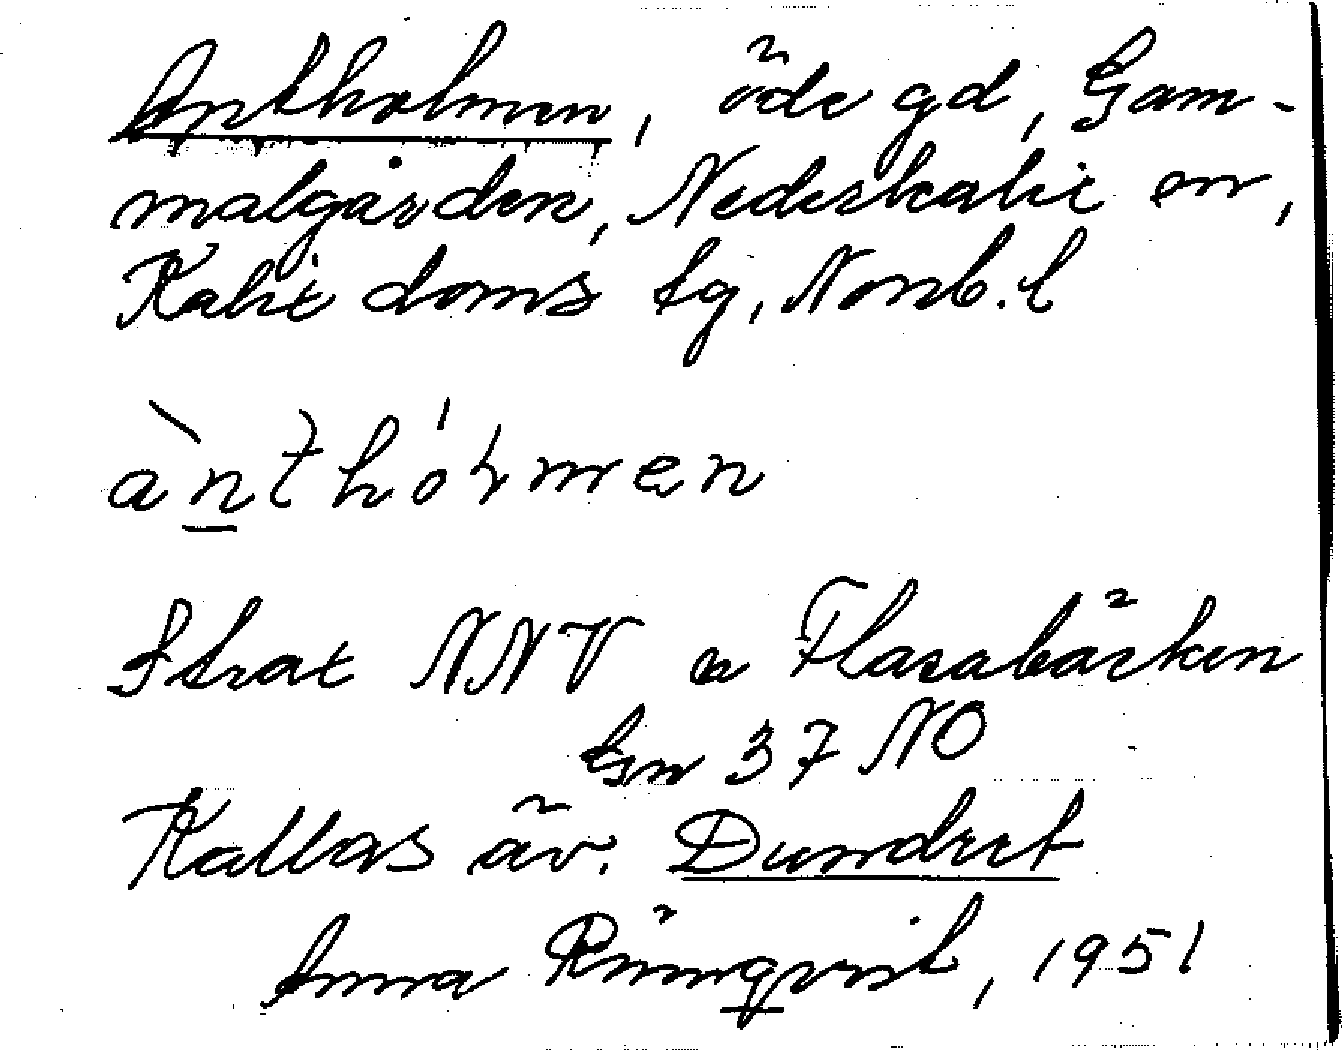 Antholmen, öde gd, Gam-
malgården, Nederkalix sn,
Kalix doms tg, Norrb. l
ànthóɽmen
Strax NNV om Flarabäcken
Gsn 37 NO
Kallas äv. Dundret
Anna Rönnqvist, 1951